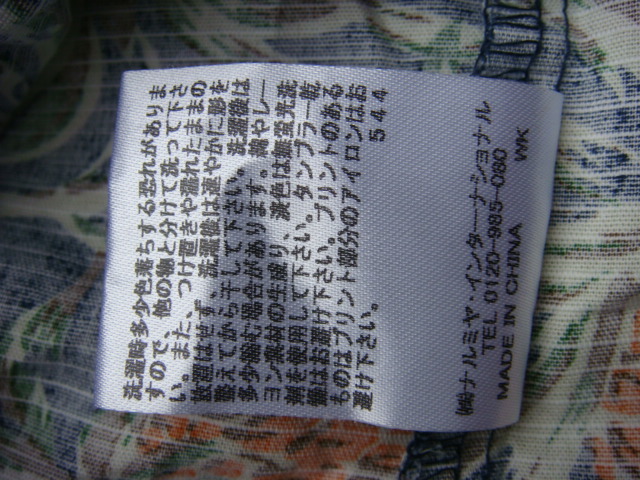 洗濯時多少色落ちする恐れがありま
すので、他の物と分けて洗って下さ
い。また、つけ置きや濡れたままの
放置はせず、洗濯後は速やかに形を
整えてから干して下さい。洗濯後は
多少縮む場合があります。綿やレー
ヨン素材の生成り、淡色は無蛍光洗
剤を使用して下さい。タンブラー乾
燥はお避け下さい。プリントのある
ものはプリント部分のアイロンはお
避け下さい。
544
㈱ナルミヤ・インターナショナル
TEL 0120-985-080
MADE IN CHINA WK